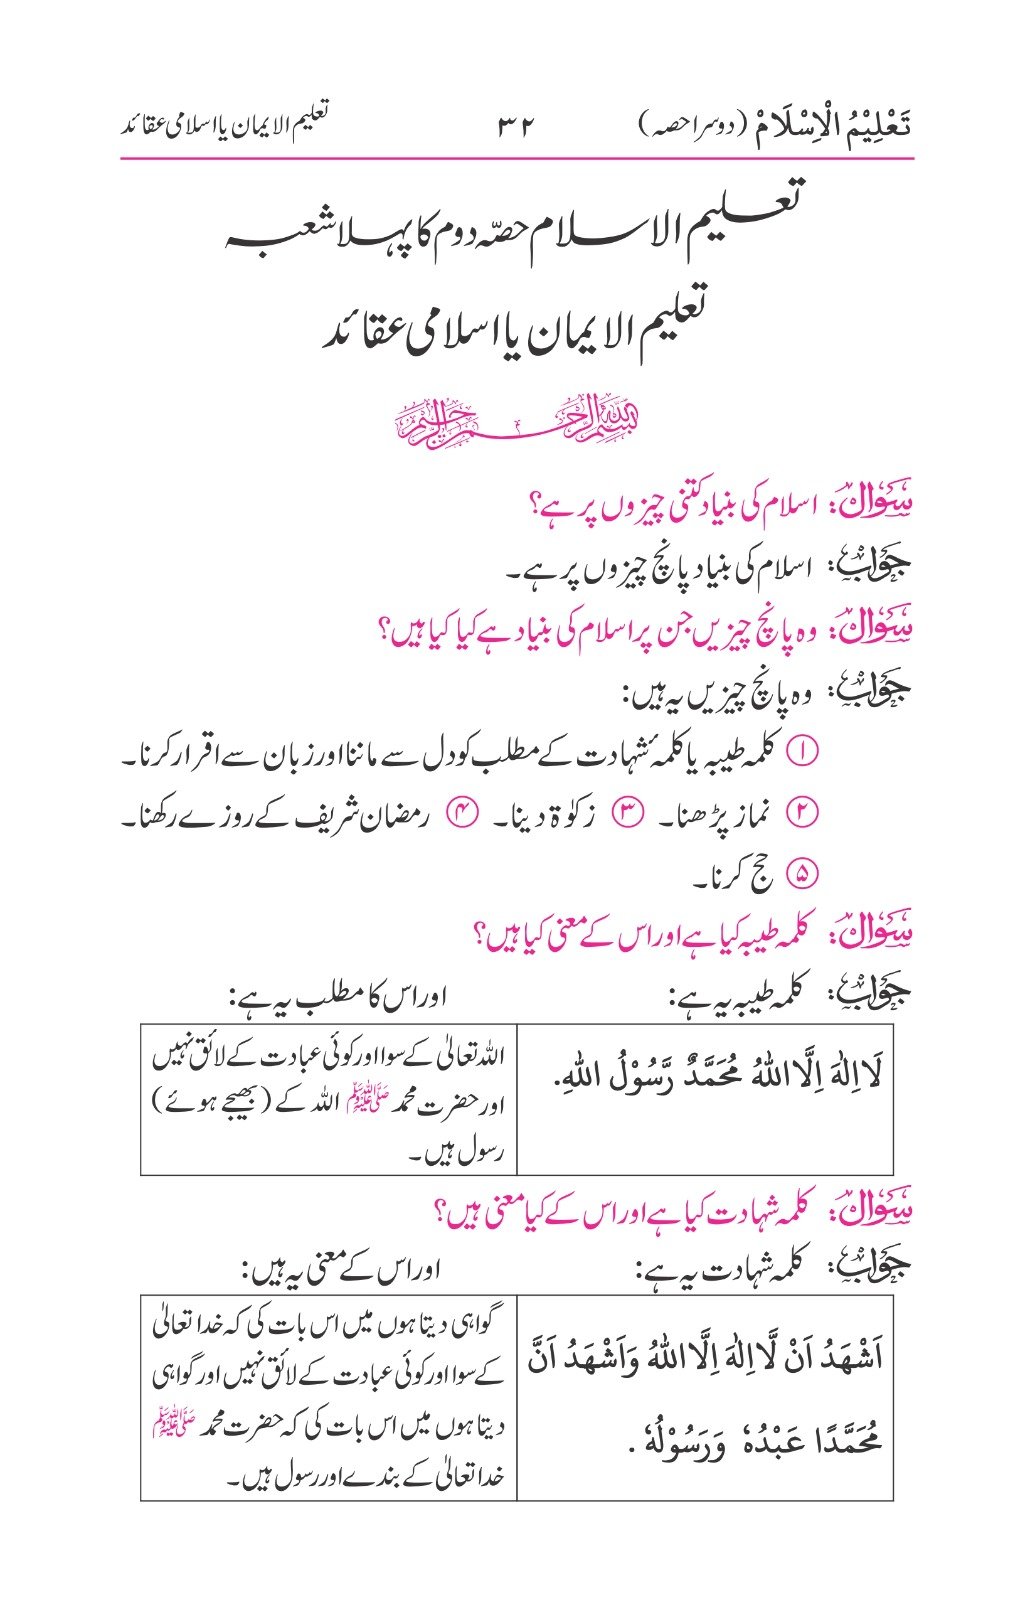 تَعْلِيْمُ الْاِسْلَامْ (دوسرا حصہ) ۳۲ تعلیم الایمان یا اسلامی عقائد
تعلیم الاسلام حصّہ دوم کا پہلا شعبہ
تعلیم الایمان یا اسلامی عقائد
بسم الله الرحمن الرحیم
سوال: اسلام کی بنیاد کتنی چیزوں پر ہے؟
جواب: اسلام کی بنیاد پانچ چیزوں پر ہے۔
سوال: وہ پانچ چیزیں جن پر اسلام کی بنیاد ہے کیا کیا ہیں؟
جواب: وہ پانچ چیزیں یہ ہیں:
① کلمہ طیبہ یا کلمۂ شہادت کے مطلب کو دل سے ماننا اور زبان سے اقرار کرنا۔
② نماز پڑھنا۔ ③ زکوٰۃ دینا۔ ④ رمضان شریف کے روزے رکھنا۔
⑤ حج کرنا۔
سوال: کلمہ طیبہ کیا ہے اور اس کے معنی کیا ہیں؟
جواب: کلمہ طیبہ یہ ہے: اور اس کا مطلب یہ ہے:
لَا اِلٰهَ اِلَّا اللهُ مُحَمَّدٌ رَّسُوْلُ اللهِ.
اللہ تعالیٰ کے سوا اور کوئی عبادت کے لائق نہیں
اور حضرت محمد ﷺ اللہ کے (بھیجے ہوئے)
رسول ہیں۔
سوال: کلمہ شہادت کیا ہے اور اس کے کیا معنی ہیں؟
جواب: کلمہ شہادت یہ ہے: اور اس کے معنی یہ ہیں:
اَشْهَدُ اَنْ لَّا اِلٰهَ اِلَّا اللهُ وَاَشْهَدُ اَنَّ
مُحَمَّدًا عَبْدُهٗ وَرَسُوْلُهٗ .
گواہی دیتا ہوں میں اس بات کی کہ خدا تعالیٰ
کے سوا اور کوئی عبادت کے لائق نہیں اور گواہی
دیتا ہوں میں اس بات کی کہ حضرت محمد ﷺ
خدا تعالیٰ کے بندے اور رسول ہیں۔